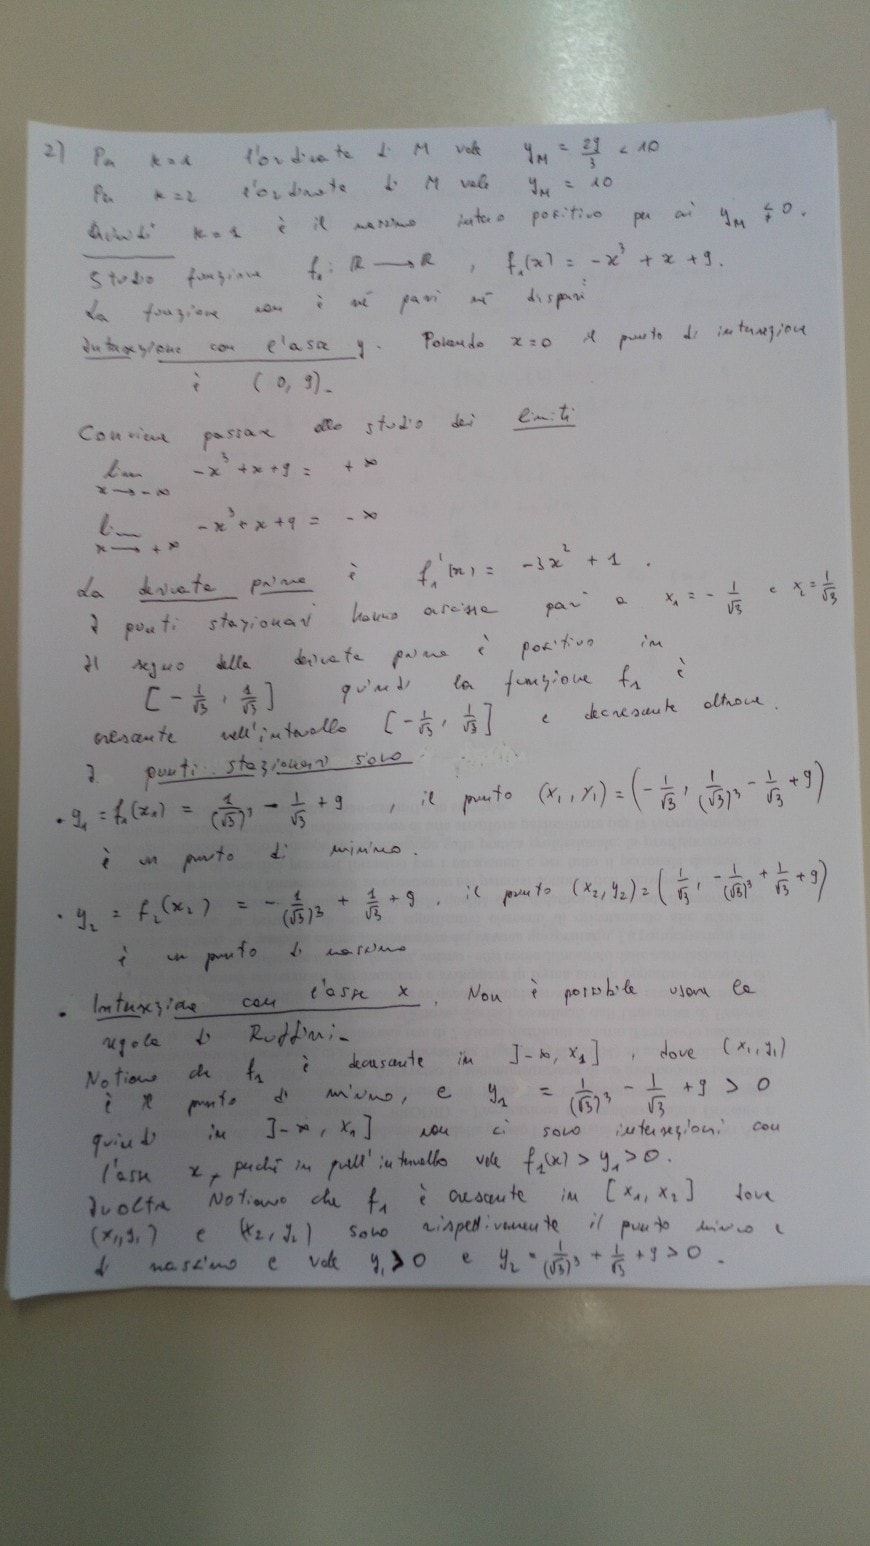 2) Per k=1 l'ordinata di M vale y_M = 29/3 < 10
Per k=2 l'ordinata di M vale y_M = 10
Quindi k=1 è il massimo intero positivo per cui y_M < 0.
Studio funzione f₁: ℝ → ℝ, f₁(x) = -x³ + x + 9.
La funzione non è né pari né dispari
Intersezione con l'asse y. Ponendo x=0 il punto di intersezione
è (0, 9).
Conviene passare allo studio dei limiti
lim x→-∞ -x³+x+9 = +∞
lim x→+∞ -x³+x+9 = -∞
La derivata prima è f₁'(x) = -3x² + 1.
I punti stazionari hanno ascissa pari a x₁ = -1/√3 e x₂ = 1/√3
Il segno della derivata prima è positivo in
[-1/√3, 1/√3] quindi la funzione f₁ è
crescente nell'intervallo [-1/√3, 1/√3] e decrescente altrove.
I punti stazionari sono
• y₁ = f₁(x₁) = 1/(√3)³ - 1/√3 + 9, il punto (x₁, y₁) = (-1/√3, 1/(√3)³ - 1/√3 + 9)
è un punto di minimo.
• y₂ = f₂(x₂) = -1/(√3)³ + 1/√3 + 9, il punto (x₂, y₂) = (1/√3, -1/(√3)³ + 1/√3 + 9)
è un punto di massimo
• Intersezione con l'asse x. Non è possibile usare la
regola di Ruffini.
Notiamo che f₁ è decrescente in ]-∞, x₁], dove (x₁, y₁)
è il punto di minimo, e y₁ = 1/(√3)³ - 1/√3 + 9 > 0
quindi in ]-∞, x₁] non ci sono intersezioni con
l'asse x, perché in quell'intervallo vale f₁(x) > y₁ > 0.
Inoltre Notiamo che f₁ è crescente in [x₁, x₂] dove
(x₁, y₁) e (x₂, y₂) sono rispettivamente il punto minimo e
di massimo e vale y₁ > 0 e y₂ = 1/(√3)³ + 1/√3 + 9 > 0.